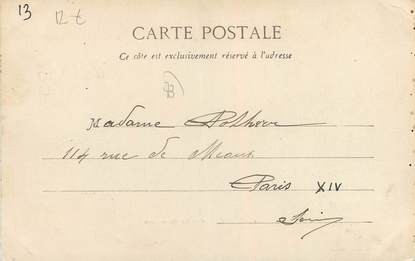 13 12 €
CARTE POSTALE
Ce côté est exclusivement réservé à l'adresse
Madame
114 rue de Meaux
Paris XIV
Seine